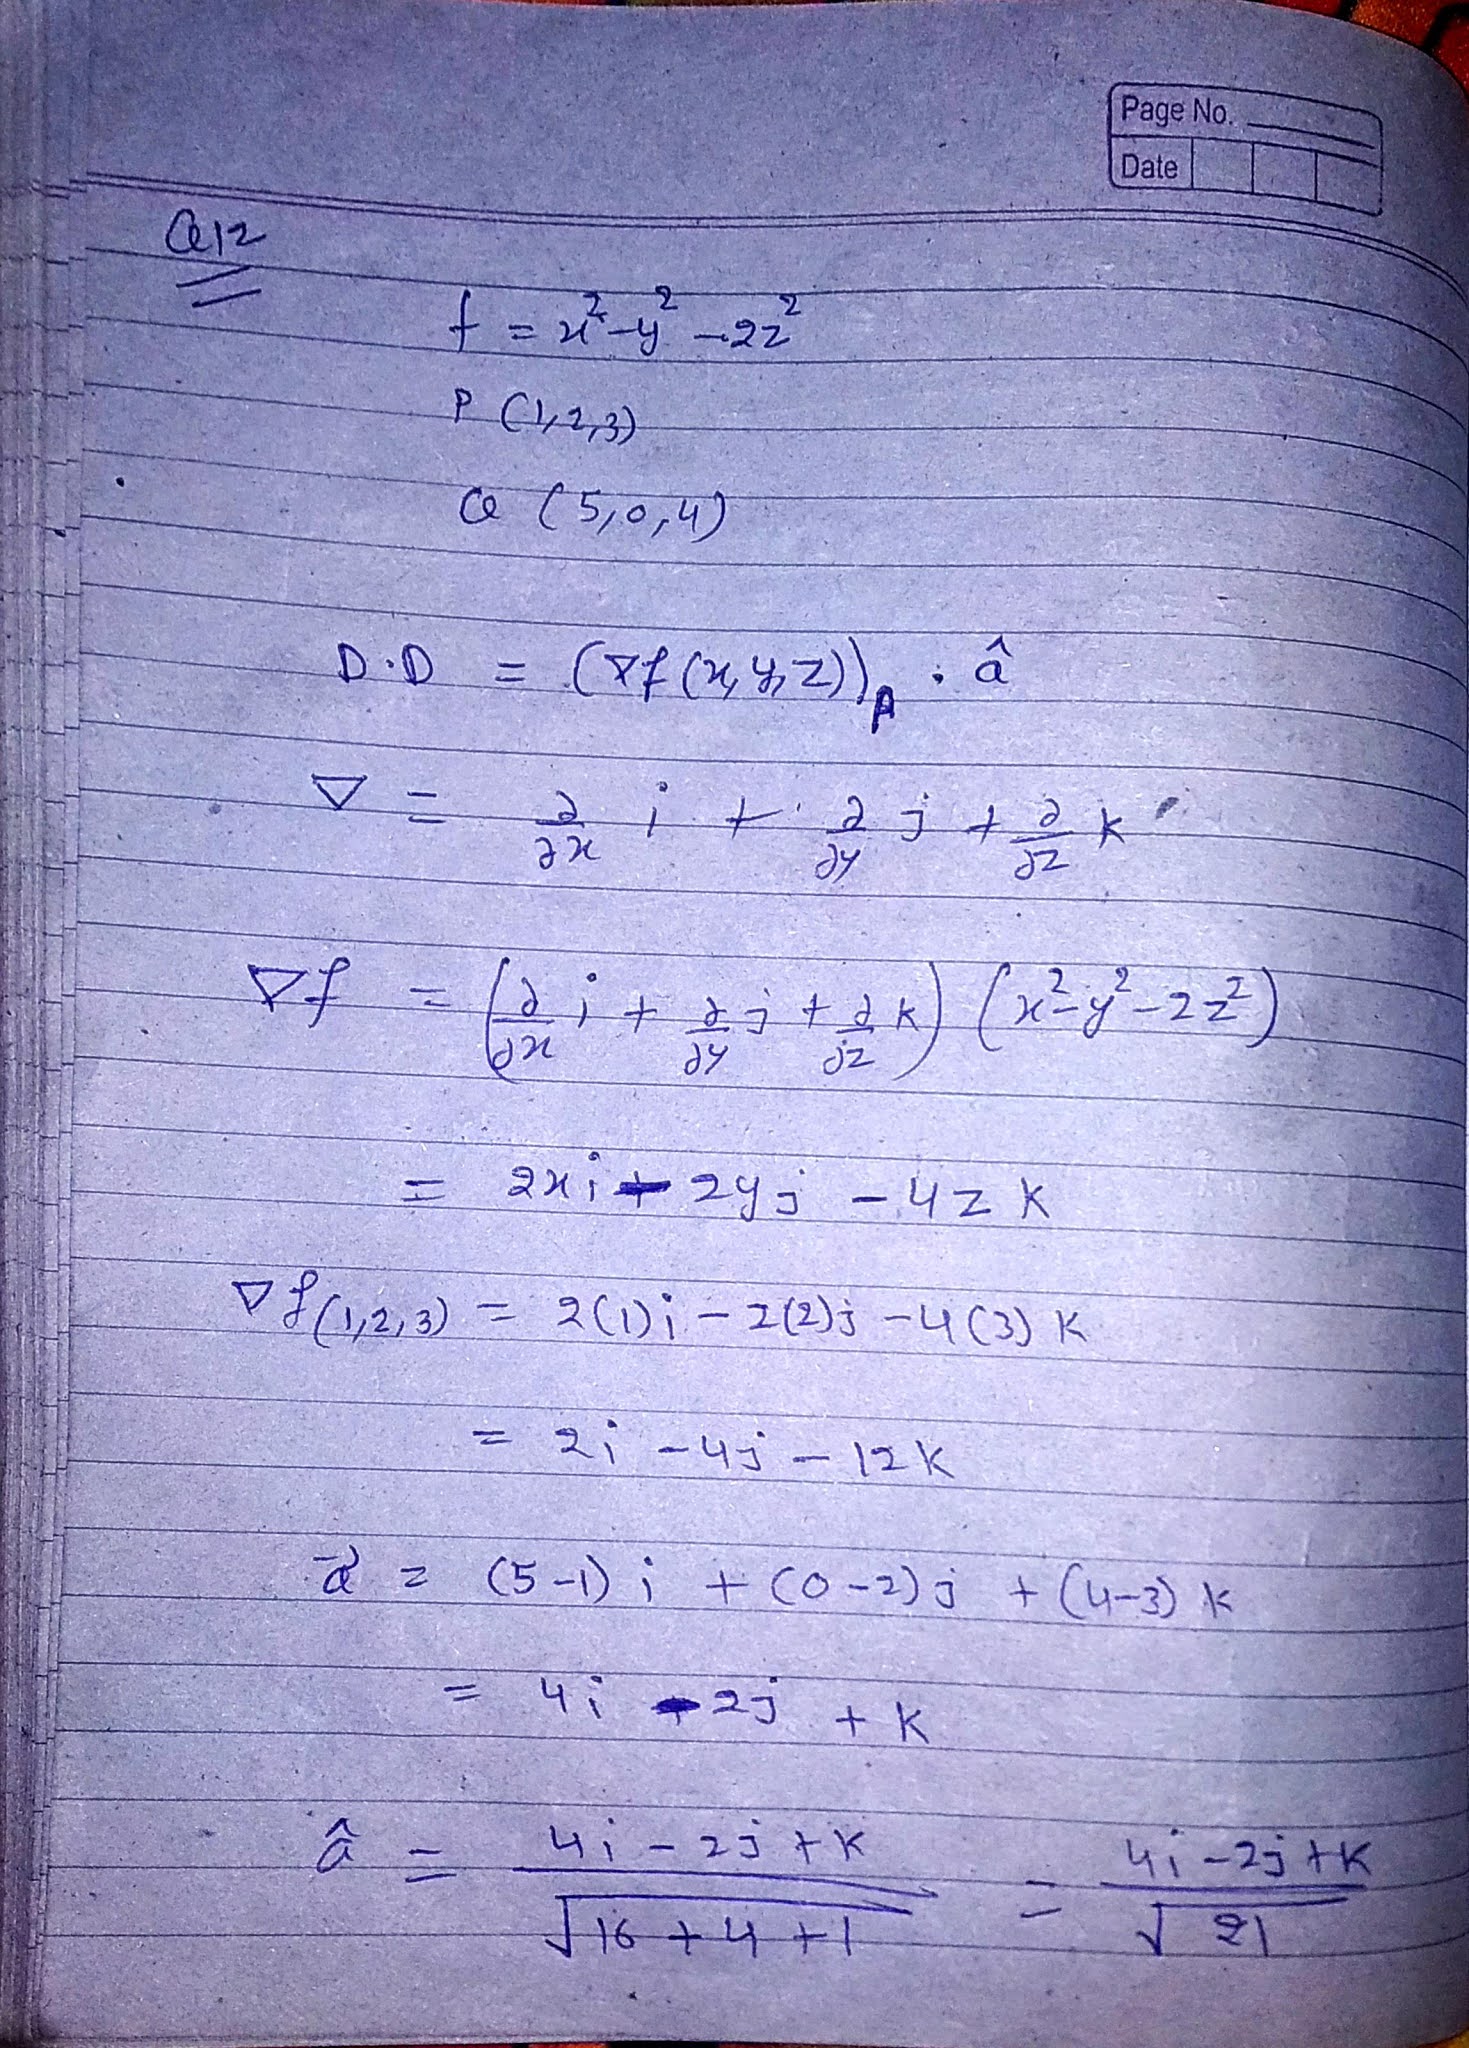 Page No.
Date
Q12
f = x² - y² - 2z²
P (1,2,3)
Q (5,0,4)
D.D = (∇f (x,y,z))ₚ . â
∇ = ∂/∂x i + ∂/∂y j + ∂/∂z k
∇f = (∂/∂x i + ∂/∂y j + ∂/∂z k) (x² - y² - 2z²)
= 2xi - 2yj - 4z k
∇f(1,2,3) = 2(1)i - 2(2)j - 4(3) k
= 2i - 4j - 12k
a⃗ = (5-1) i + (0-2) j + (4-3) k
= 4i - 2j + k
â = 4i - 2j + k / √16 + 4 + 1 = 4i - 2j + k / √21